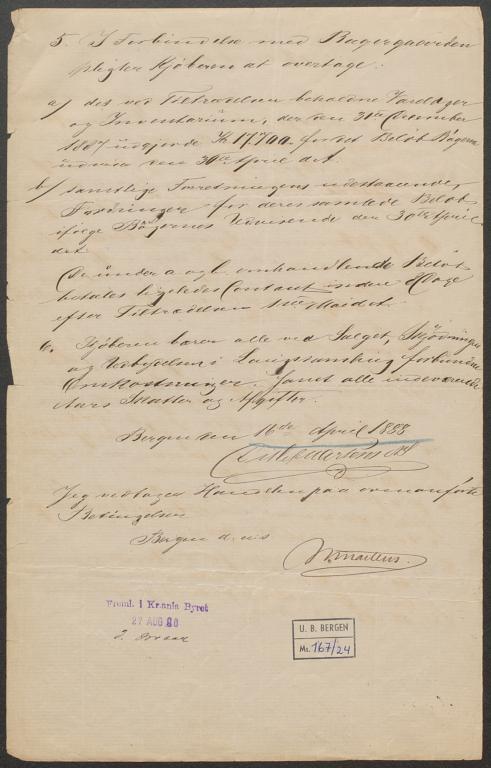 5. I Forbindelse med Bagergaarden
pligter Kjøberen at overtage:
a/ det ved Tiltrædelsen beholdne Varelager
og Inventarium, der den 31te December
1887 udgjorde Kr 17,700. for det Beløb Bøgerne
udvise den 30te April det.
b/ samtlige Forretningens udestaaende
Fordringer for deres samlede Beløb
ifølge Bøgernes Udvisende den 30te April
det.
De under a og b. omhandlende Beløb
betales ligeledes Contant inden 8 Dage
efter Tiltrædelsen 1ste Mai det.
6. Kjøberen bærer alle ved Salget, Skjødningen
og Udbydelsen i Laugssamling forbundne
Omkostninger. Samt alle indeværende
Aars Skatter og Afgifter.
Bergen den 16de April 1888
Jeg vedtager Handelen paa ovenanførte
Betingelser
Bergen d. u. s.
Freml. i Kr.ania Byret
27 AUG
U. B. BERGEN
Ms. 167/24